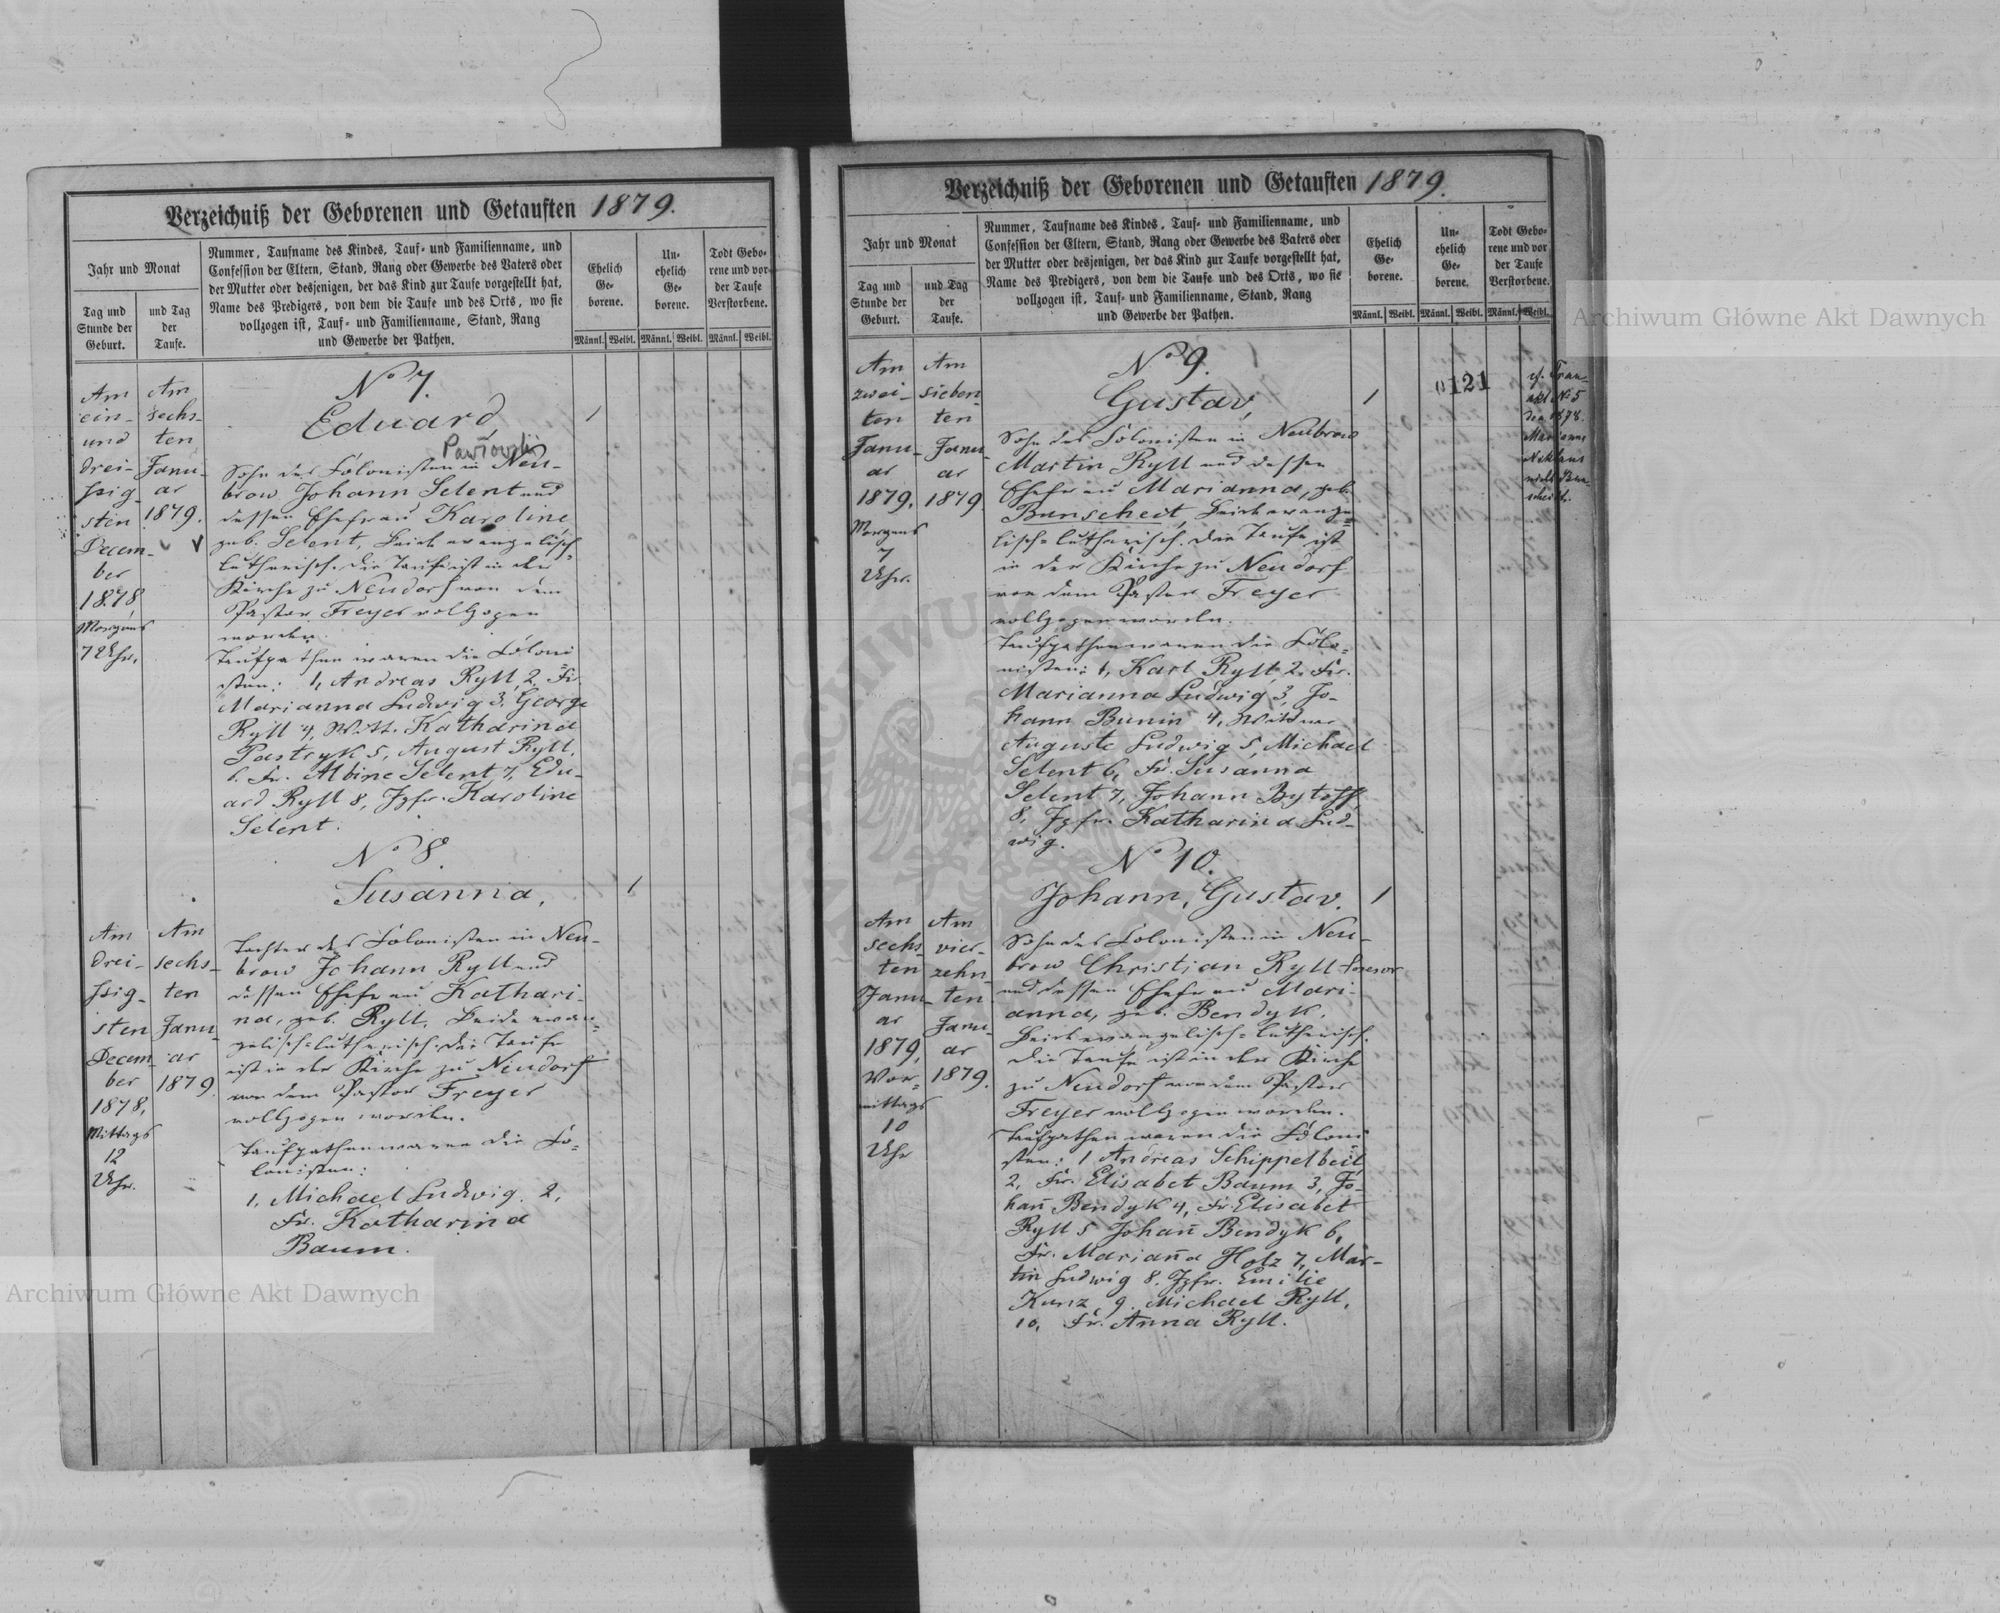 Verzeichniß der Geborenen und Getauften 1879.
Jahr und Monat
Tag und
Stunde der
Geburt.
und Tag
der
Taufe.
Nummer, Taufname des Kindes, Tauf- und Familienname, und
Confession der Eltern, Stand, Rang oder Gewerbe des Vaters oder
der Mutter oder desjenigen, der das Kind zur Taufe vorgestellt hat,
Name des Predigers, von dem die Taufe und des Orts, wo sie
vollzogen ist, Tauf- und Familienname, Stand, Rang
und Gewerbe der Pathen.
Ehelich
Ge-
borene.
Un-
ehelich
Ge-
borene.
Todt Gebo-
rene und vor
der Taufe
Verstorbene.
Männl. Weibl. Männl. Weibl. Männl. Weibl.
Am
ein-
und
drei-
ssig-
sten
Decem-
ber
1878,
Morgens
7 Uhr.
Am
sechs-
ten
Janu-
ar
1879.
No 7.
Eduard,
1
Sohn des Kolonisten in Neu-
brow Johann Selent und
dessen Ehefrau Karoline
geb. Selent, beide evangelisch-
lutherisch. Die Taufe ist in der
Kirche zu Neudorf von dem
Pastor Freyer vollzogen
worden.
Taufpathen waren die Koloni-
sten: 1, Andreas Ryll, 2, Fr.
Marianna Ludwig 3, George
Ryll 4, Witt. Katharina
Pastryk 5, August Ryll,
6. Fr. Albine Selent 7, Edu-
ard Ryll 8, Jgfr. Karoline
Selent.
No 8.
Susanna,
1
Am
drei-
ssig-
sten
Decem-
ber
1878,
Mittags
12
Uhr.
Am
sechs-
ten
Janu-
ar
1879.
Tochter des Kolonisten in Neu-
brow Johann Ryll und
dessen Ehefrau Kathari-
na, geb. Ryll, beide evan-
gelisch-lutherisch. Die Taufe
ist in der Kirche zu Neudorf
von dem Pastor Freyer
vollzogen worden.
Taufpathen waren die Ko-
lonisten:
1, Michael Ludwig. 2,
Fr. Katharina
Baum.
Verzeichniß der Geborenen und Getauften 1879.
Jahr und Monat
Tag und
Stunde der
Geburt.
und Tag
der
Taufe.
Nummer, Taufname des Kindes, Tauf- und Familienname, und
Confession der Eltern, Stand, Rang oder Gewerbe des Vaters oder
der Mutter oder desjenigen, der das Kind zur Taufe vorgestellt hat,
Name des Predigers, von dem die Taufe und des Orts, wo sie
vollzogen ist, Tauf- und Familienname, Stand, Rang
und Gewerbe der Pathen.
Ehelich
Ge-
borene.
Un-
ehelich
Ge-
borene.
Todt Gebo-
rene und vor
der Taufe
Verstorbene.
Männl. Weibl. Männl. Weibl. Männl. Weibl.
Am
zwei-
ten
Janu-
ar
1879,
Morgens
7
Uhr.
Am
sieben-
ten
Janu-
ar
1879.
No 9.
Gustav,
1
0121
cf. Trau-
akt No 5
1878.
Marianna
Sohn des Kolonisten in Neubrow
Martin Ryll und dessen
Ehefrau Marianna, geb.
Bunscheit, beide evange-
lisch-lutherisch. Die Taufe ist
in der Kirche zu Neudorf
von dem Pastor Freyer
vollzogen worden.
Taufpathen waren die Kolo-
nisten: 1, Karl Ryll, 2. Fr.
Marianna Ludwig 3, Jo-
hann Bunin 4,
Auguste Ludwig 5, Michael
Selent 6, Fr. Susanna
Selent 7, Johann Bytoff
8, Jgfr. Katharina Lud-
wig.
No 10.
Johann, Gustav.
1
Am
sechs-
ten
Janu-
ar
1879,
Vor-
mittags
10
Uhr
Am
vier-
zehn-
ten
Janu-
ar
1879.
Sohn des Kolonisten in Neu-
brow Christian Ryll
und dessen Ehefrau Mari-
anna, geb. Bendyk,
beide evangelisch-lutherisch.
Die Taufe ist in der Kirche
zu Neudorf von dem Pastor
Freyer vollzogen worden.
Taufpathen waren die Koloni-
sten: 1 Andreas Schippelbeit
2, Fr. Elisabet Baum 3, Jo-
hañ Bendyk 4, Fr. Elisabet
Ryll 5 Johañ Bendyk 6,
Fr. Mariaña Holz 7, Mar-
tin Ludwig 8. Jgfr. Emilie
Kunz, 9. Michael Ryll,
10, Fr. Anna Ryll.
Archiwum Główne Akt Dawnych
Archiwum Główne Akt Dawnych